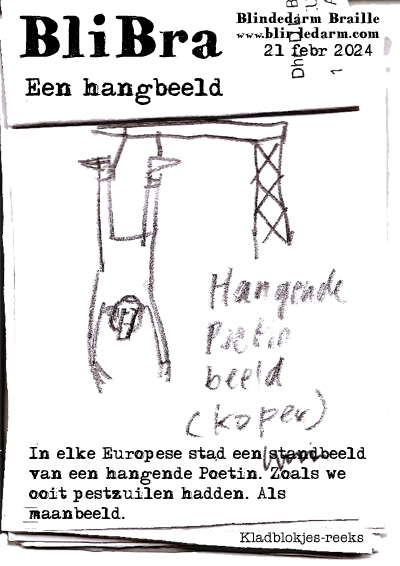 BliBra
Blindedarm Braille
www.blindedarm.com
21 febr 2024
Een hangbeeld
Hangende
Poetin
beeld
(koper)
In elke Europese stad een standbeeld
van een hangende Poetin. Zoals we
ooit pestzuilen hadden. Als
maanbeeld.
Kladblokjes-reeks